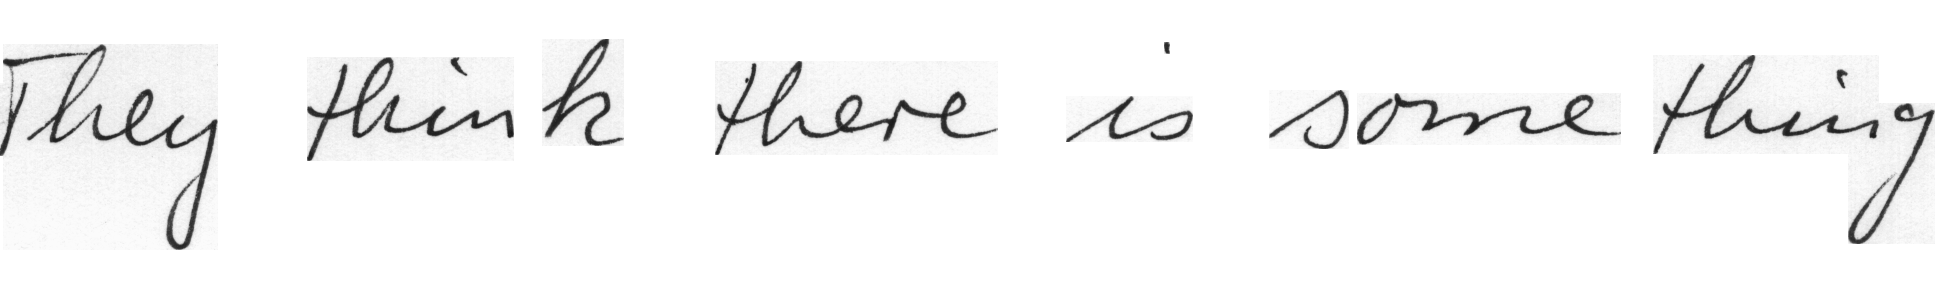 They think there is something